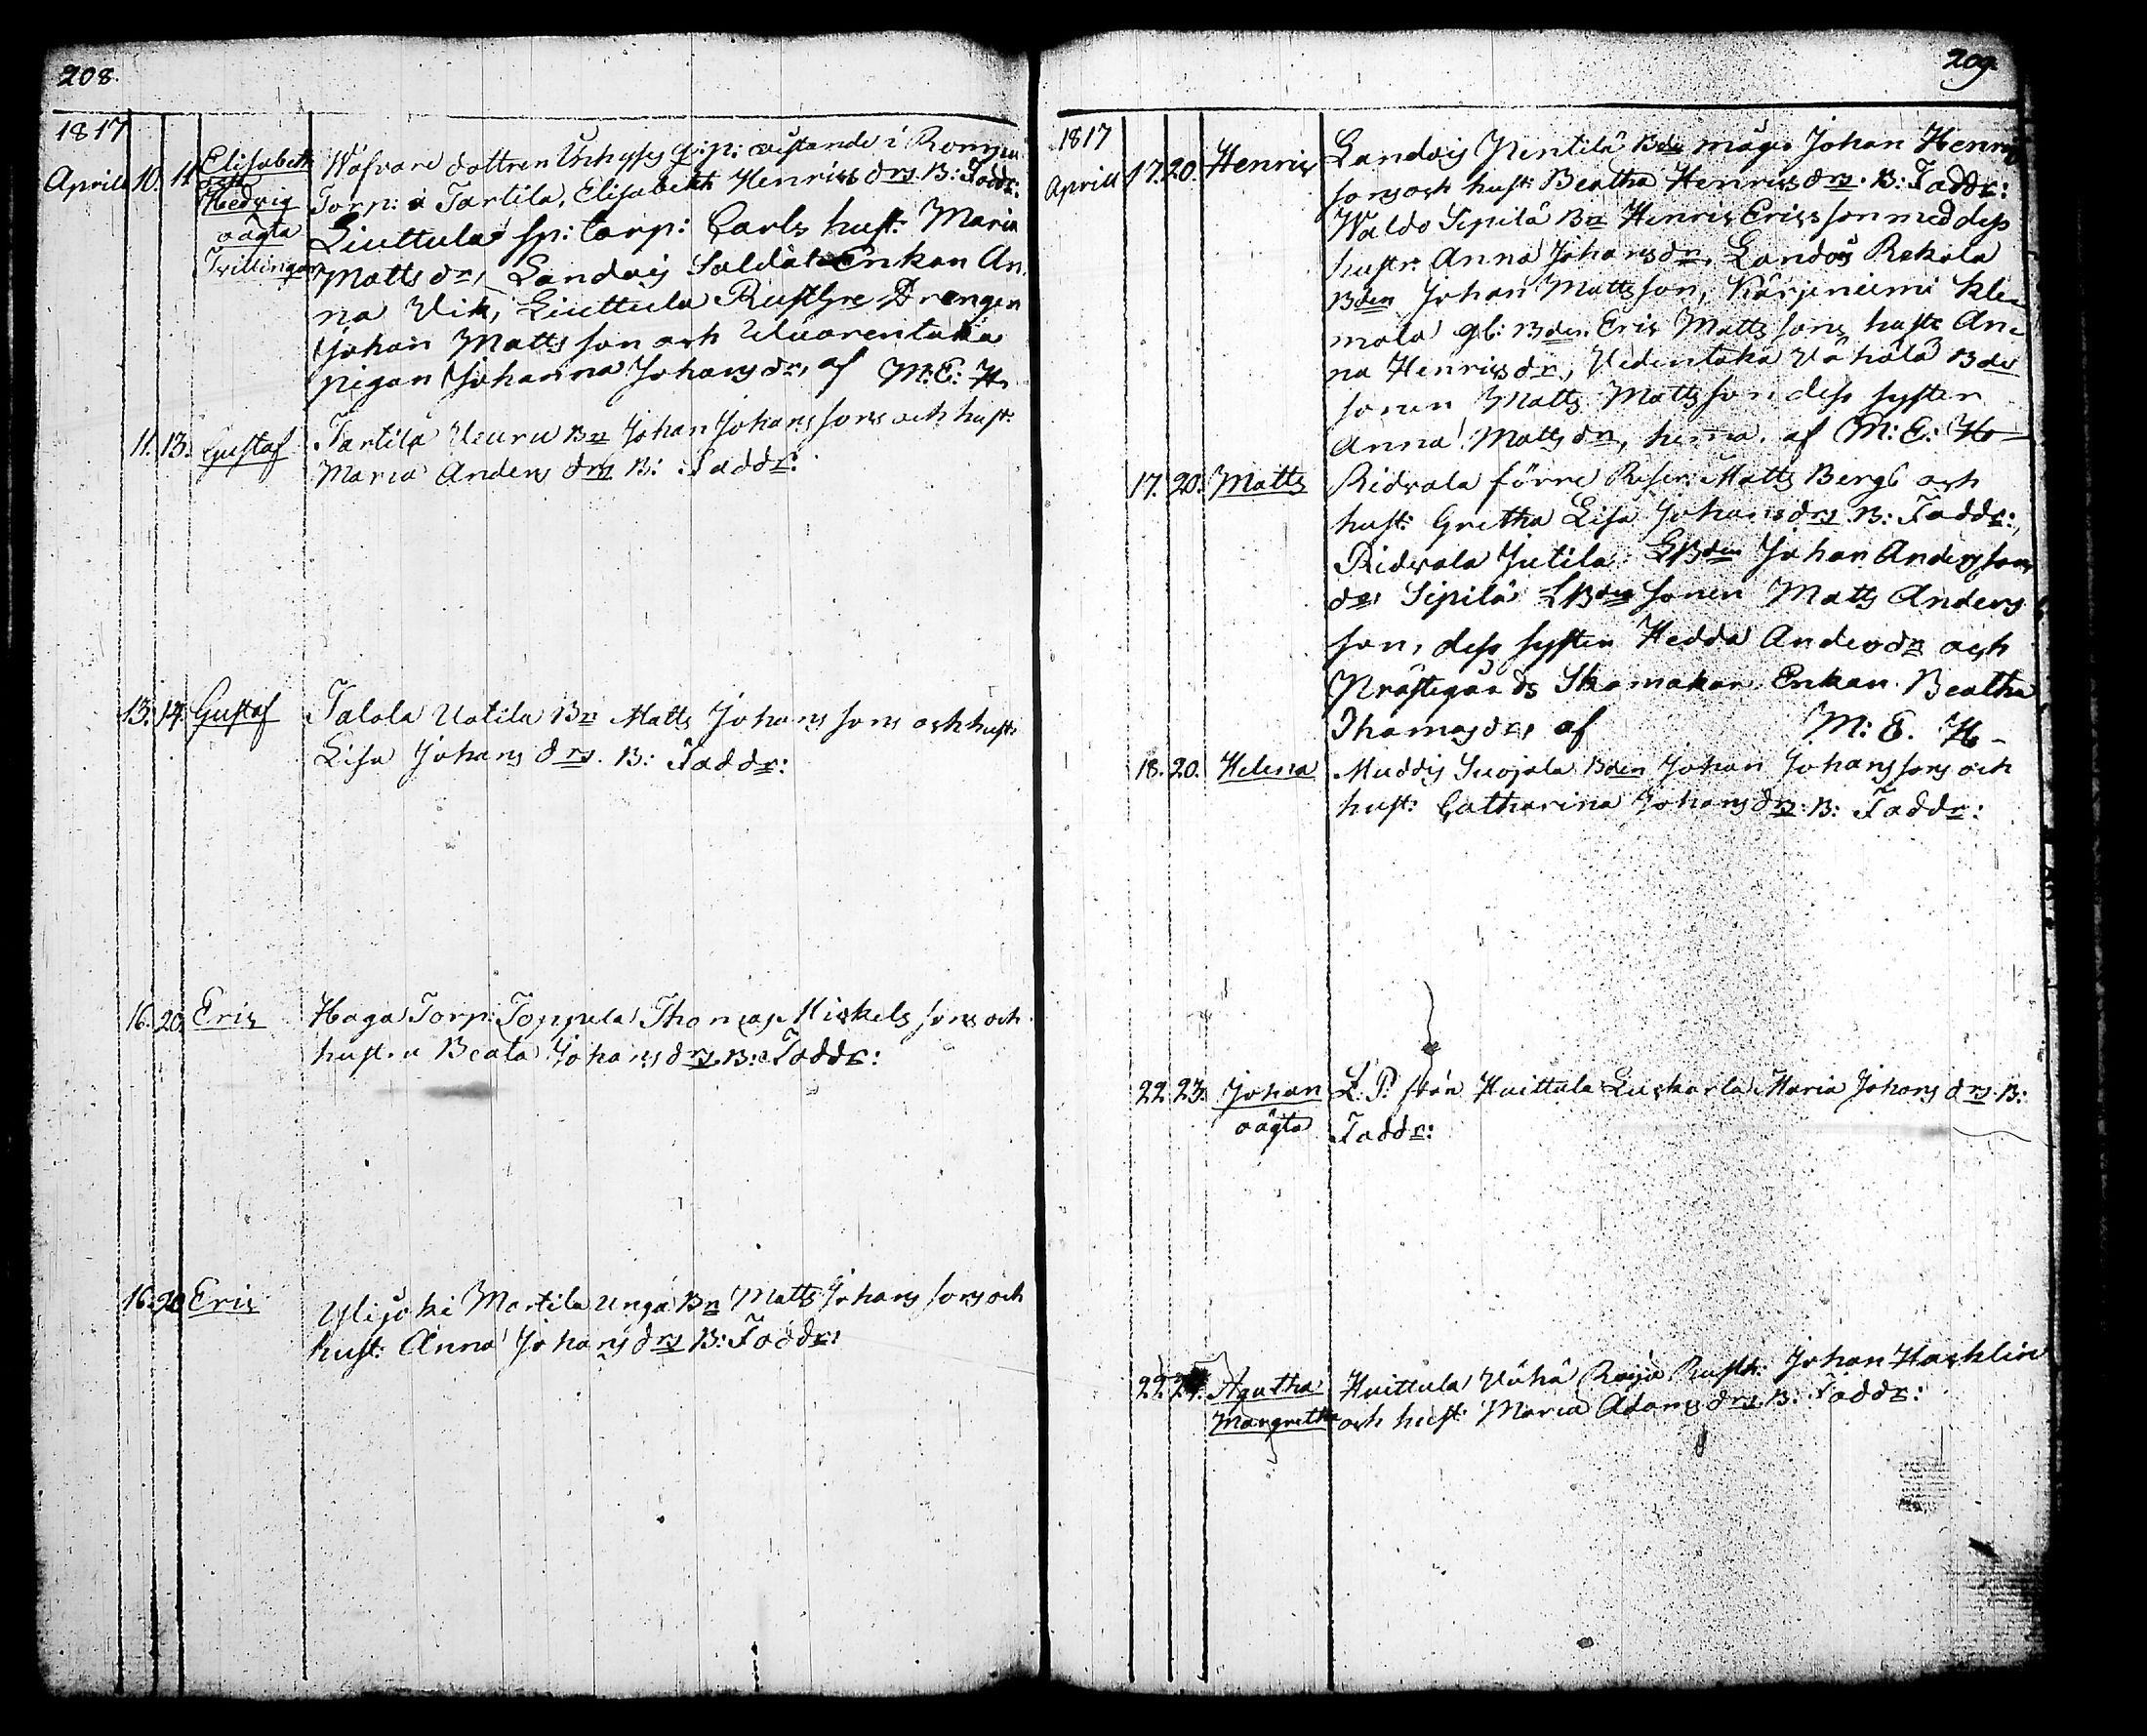 208.
1817
Aprill 10. 11. Elisabeth och Hedvig oägta Tvillingar
Wäfvare dottren vistande i
Torp: i Tartila, Elisabeth Henrics drs. B: Faddr:
Liuttula sp: torp: Carls hust. Maria
Matts dr, Landois Soldat Enkan An
na Vik, Liuttula Rusth:re Drengen
Johan Matts son och
pigan Johanna Johans dr, af M: E: H.
11. 13. Gustaf
Tartila Uuru Bn Johan Johans sons och hust:
Maria Anders drs B: Faddr:
13. 14. Gustaf
Talola Uotila Bn Matts Johans sons och hust:
Lisa Johans drs. B: Faddr:
16. 20. Eric
Haga Torp: Toppola Thomas Mickels sons och
hustru Beata Johans drs. B: Faddr:
16. 20 Eric
Ylijoki Martila unga Bn Matts Johans sons och
hust: Anna Johans drs B: Faddr:
209.
1817
Aprill 17. 20. Henric
Landois Penttilä Bds mågs Johan Henrics
sons och hust: Beatha Henrics drs. B: Faddr:
Waldo Sipilä Bn Henric Erics son med dess
hustr. Anna Johans dr, Landois Rekola
Bden Johan Matts son, Kärjeniemi Kle
mola gl: Bden Eric Matts sons hust: An
na Henrics dr, Vedentaka Vähälä Bde
sonen Matts Matts son dess syster
Anna Matts dr, hema. af M: E: H
17. 20. Matts
Ridvala förre Reser: Matts Bergs och
hust: Gretha Lisa Johans drs. B: Faddr:,
Ridvala Jutila LBden Johan Anders son
do Sipilä LBde sonen Matts Anders
son, dess syster Hedda Anders dr och
Prästegårds Skomakar Enkan Beatha
Thomas dr, af M: E. H
18. 20. Helena
Muddis Suojala Bden Johan Johans sons och
hust: Catharina Johans drs. B: Faddr:
22. 23. Johan oägta
L. P: från Huittula Luskarla Maria Johans drs. B:
Faddr:
22. 24. Agatha Margretha
Huittula Vähä Raija Rusth: Johan Hacklin
och hust: Maria Adams drs. B: Faddr: